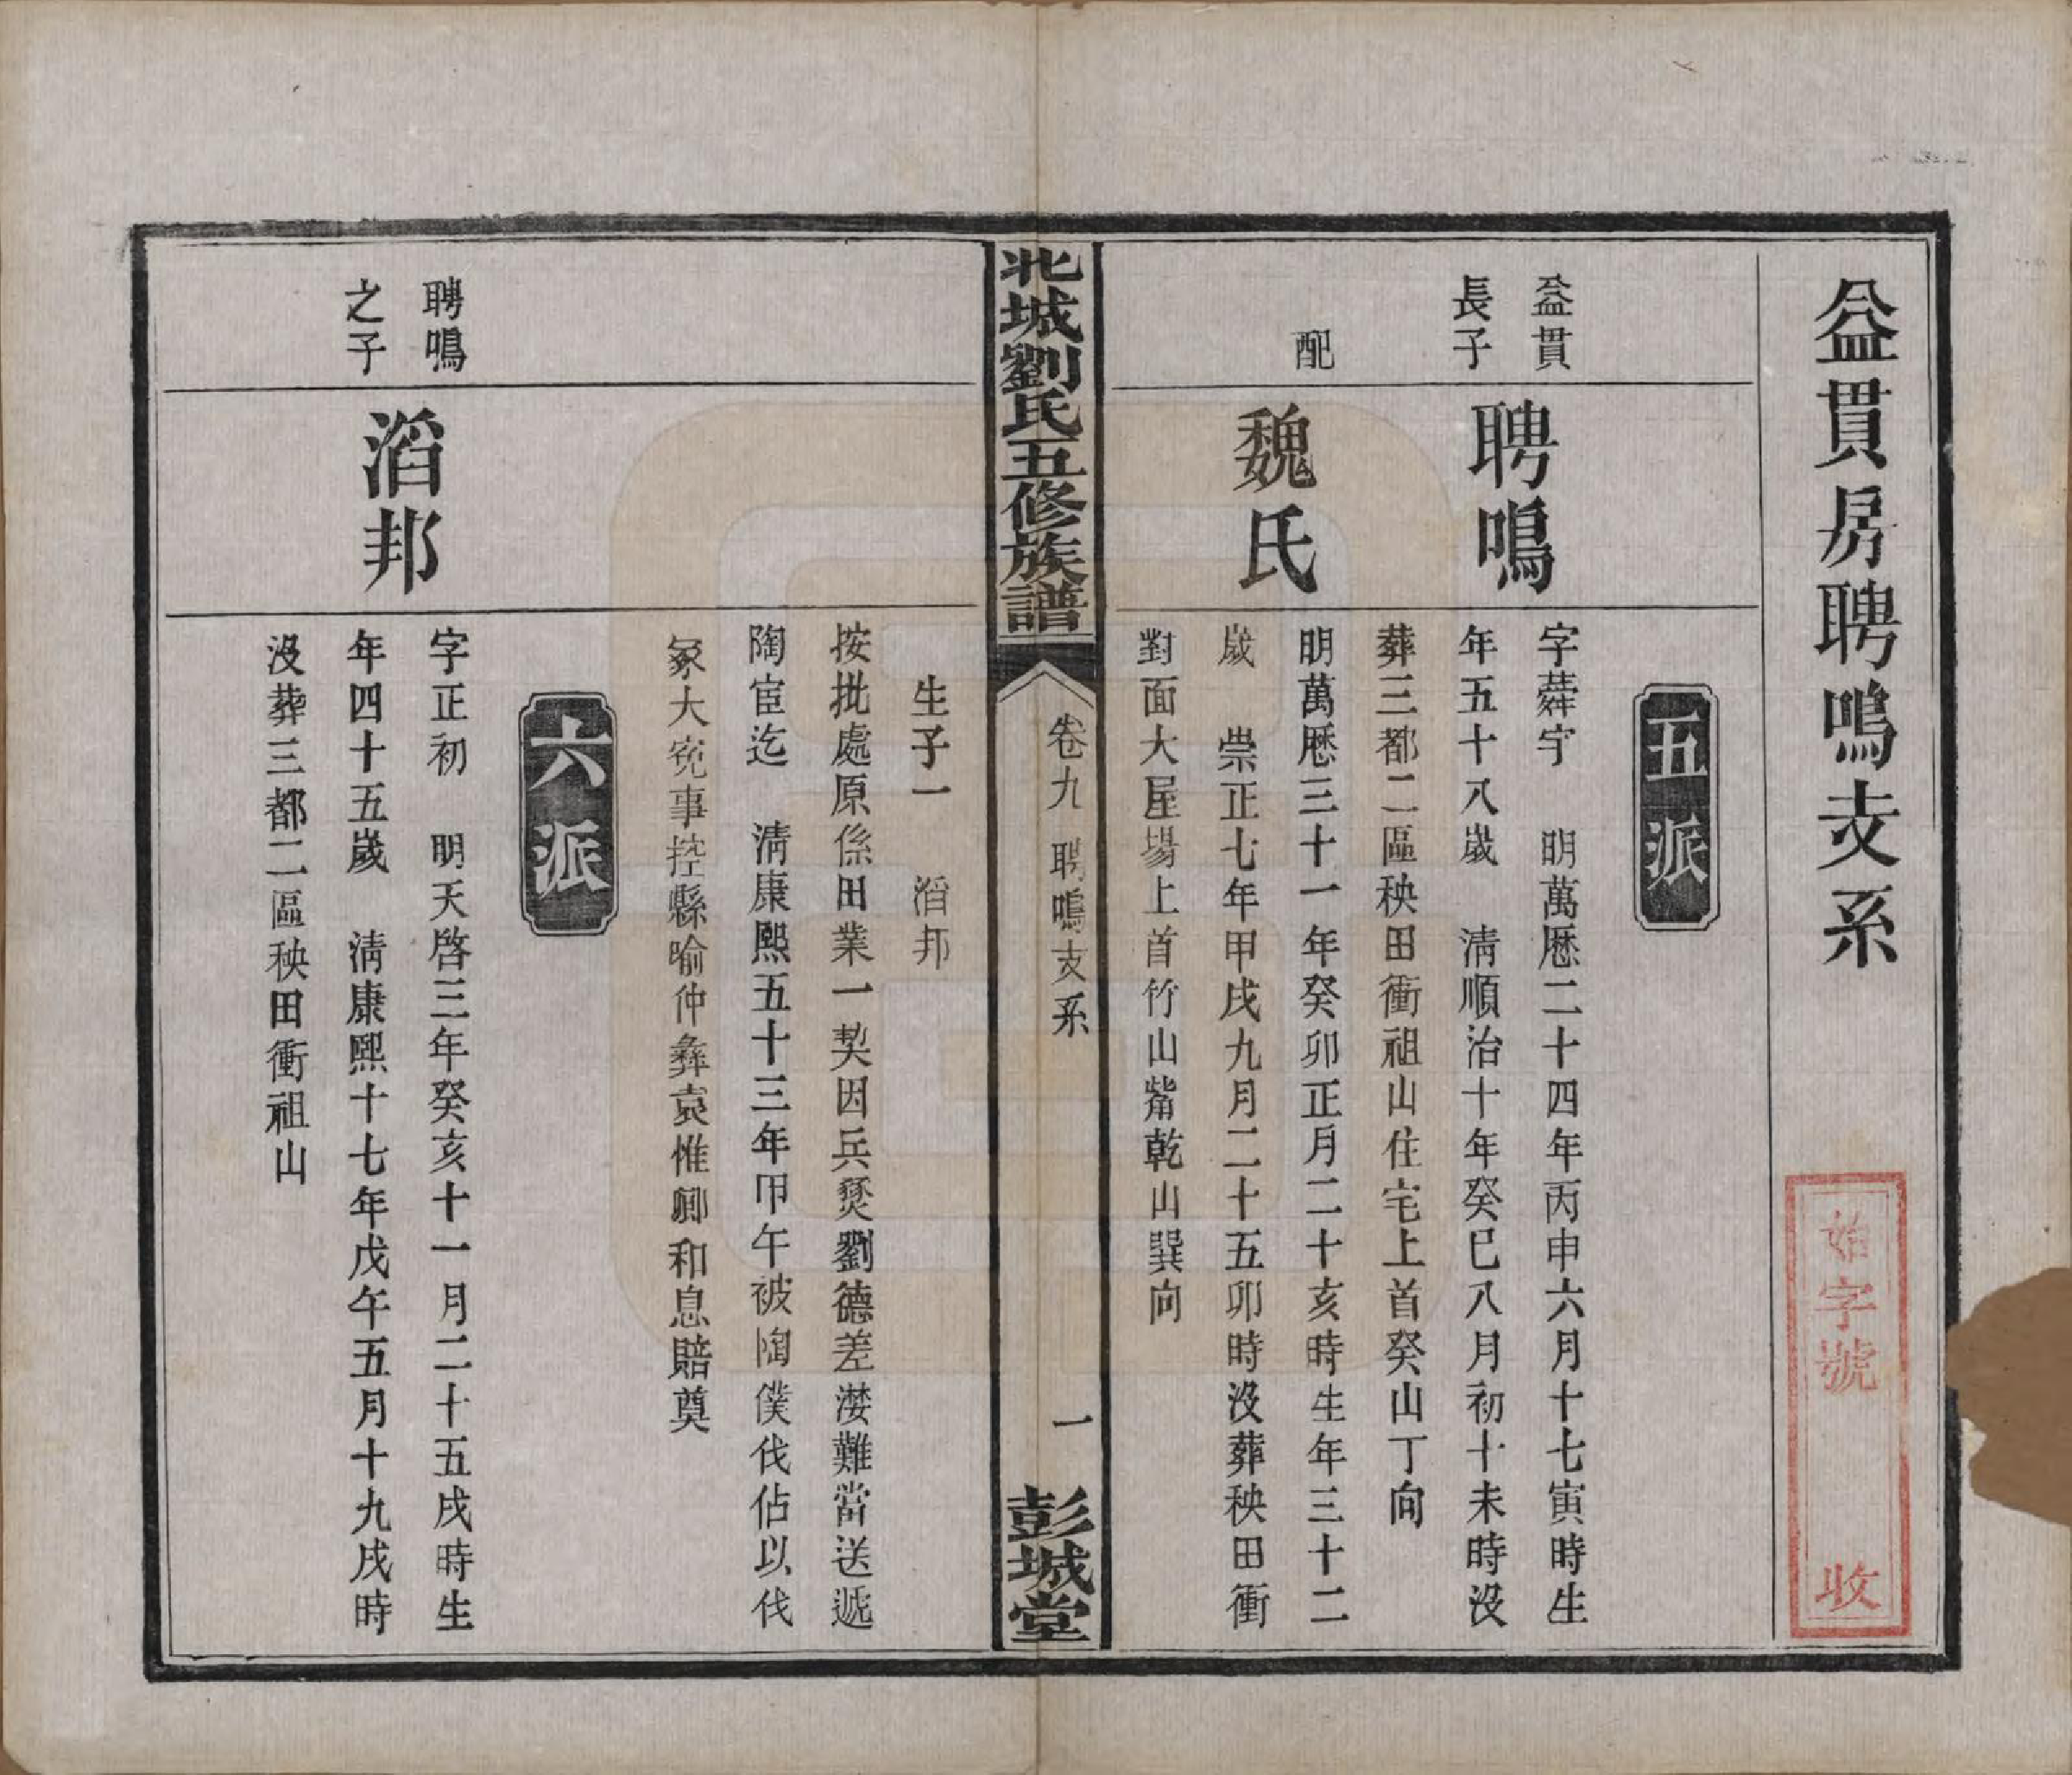 益貫房聘鳴支系
始字號 收
五派
益貫
長子
聘鳴
字蕣宇 明萬歷二十四年丙申六月十七寅時生
年五十八歲 清順治十年癸巳八月初十未時沒
葬三都二區秧田衝祖山住宅上首癸山丁向
配
魏氏
明萬歷三十一年癸卯正月二十亥時生年三十二
歲 崇正七年甲戌九月二十五卯時沒葬秧田衝
對面大屋場上首竹山嘴乾山巽向
北城劉氏五修族譜
卷九 聘鳴支系
一
彭城堂
生子一 滔邦
按批處原係田業一契因兵燹劉德差漤難當送遞
陶宦迄 清康熙五十三年甲午被陶僕伐佔以伐
冢大寃事控縣喻仲彝袁惟卿和息賠奠
六派
聘鳴
之子
滔邦
字正初 明天啓三年癸亥十一月二十五戌時生
年四十五歲 清康熙十七年戊午五月十九戌時
沒葬三都二區秧田衝祖山